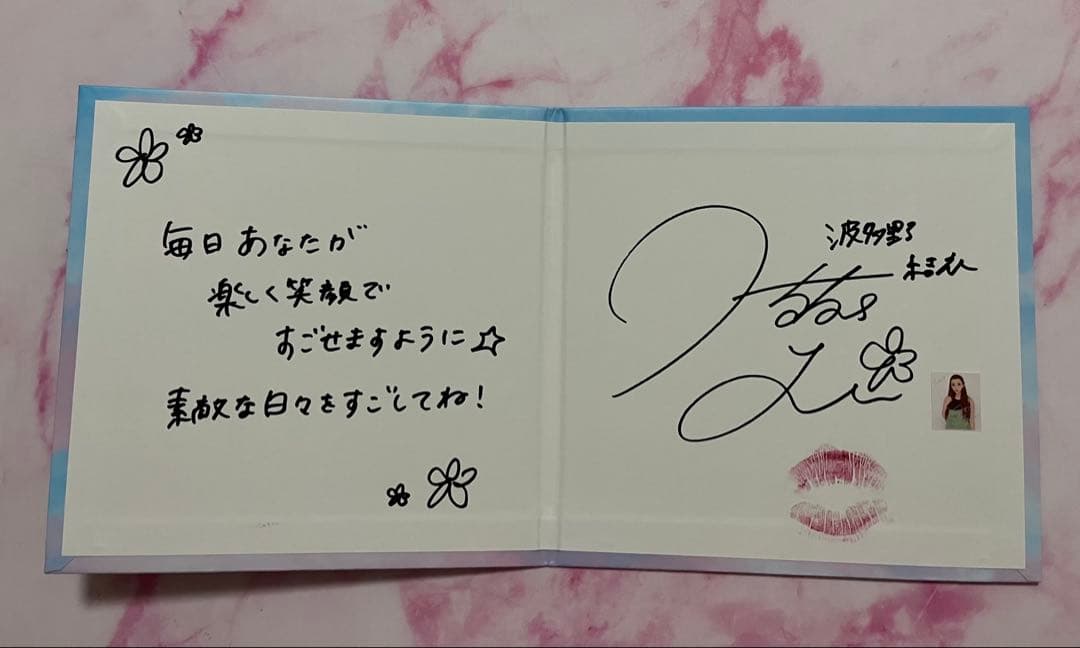 毎日あなたが
楽しく笑顔で
すごせますように☆
素敵な日々をすごしてね!
波多野
結衣